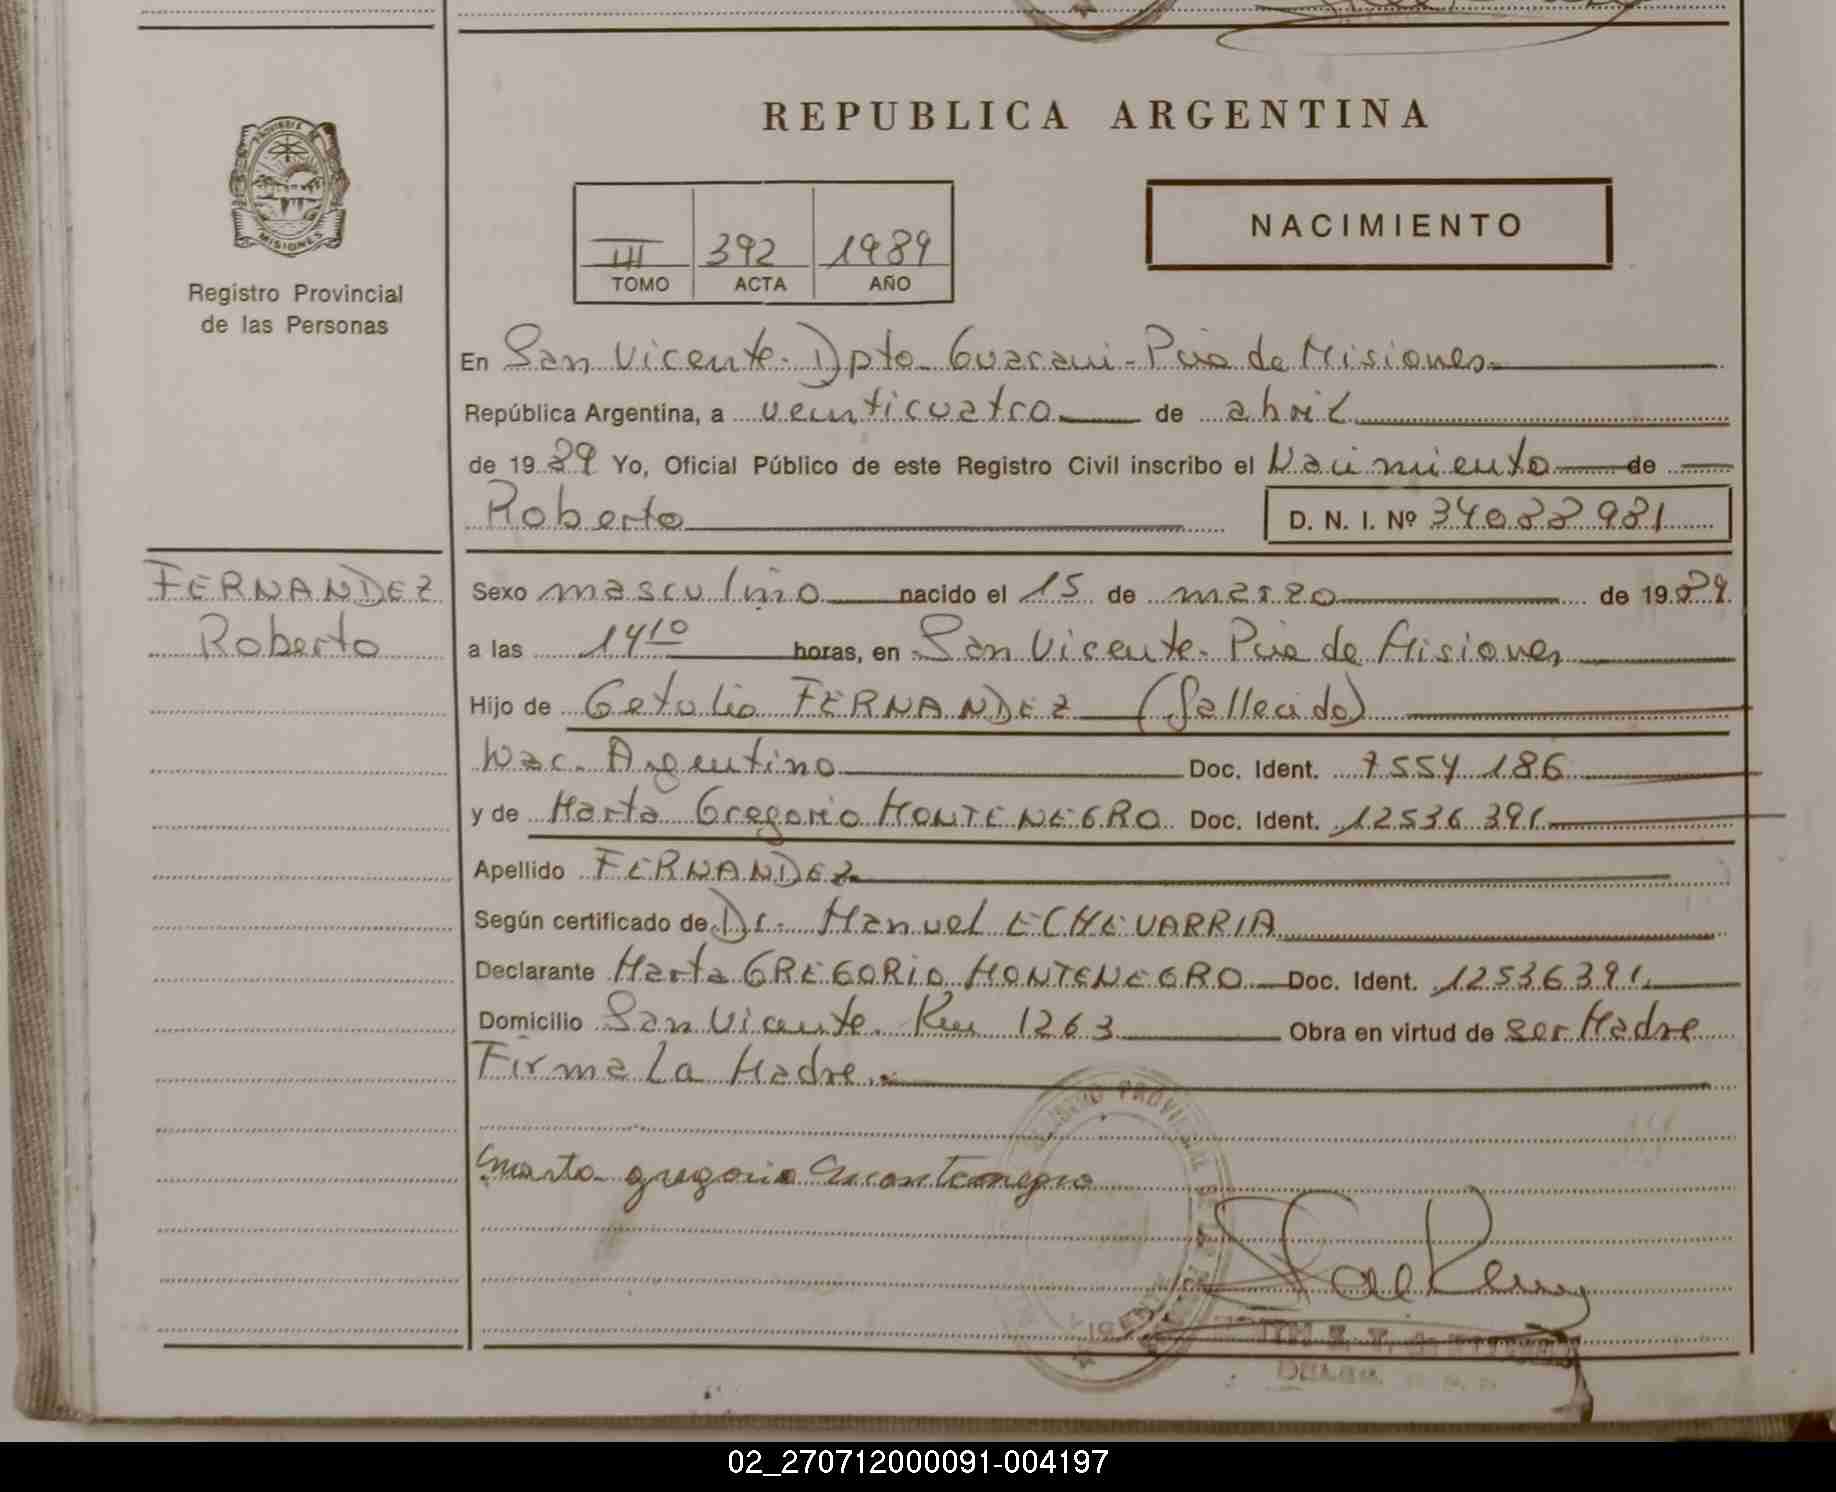 REPUBLICA ARGENTINA
PROVINCIA DE
MISIONES
Registro Provincial
de las Personas
III 392 1989
TOMO ACTA AÑO
NACIMIENTO
En San Vicente - Dpto Guarani - Pcia de Misiones
República Argentina, a veinticuatro de abril
de 1989 Yo, Oficial Público de este Registro Civil inscribo el Nacimiento de
Roberto D. N. I. Nº 34088981
FERNANDEZ
Roberto
Sexo masculino nacido el 15 de marzo de 1989
a las 14 10 horas, en San Vicente - Pcia de Misiones
Hijo de Getulio FERNANDEZ (fallecido)
Nac. Argentino Doc. Ident. 7554186
y de Marta Gregorio MONTENEGRO Doc. Ident. 12536391
Apellido FERNANDEZ
Según certificado de Dr. Manuel ECHEVARRIA
Declarante Marta GREGORIO MONTENEGRO Doc. Ident. 12536391
Domicilio San Vicente Km 1263 Obra en virtud de ser Madre
Firma La Madre.
Marta gregorio Montenegro
02_270712000091-004197